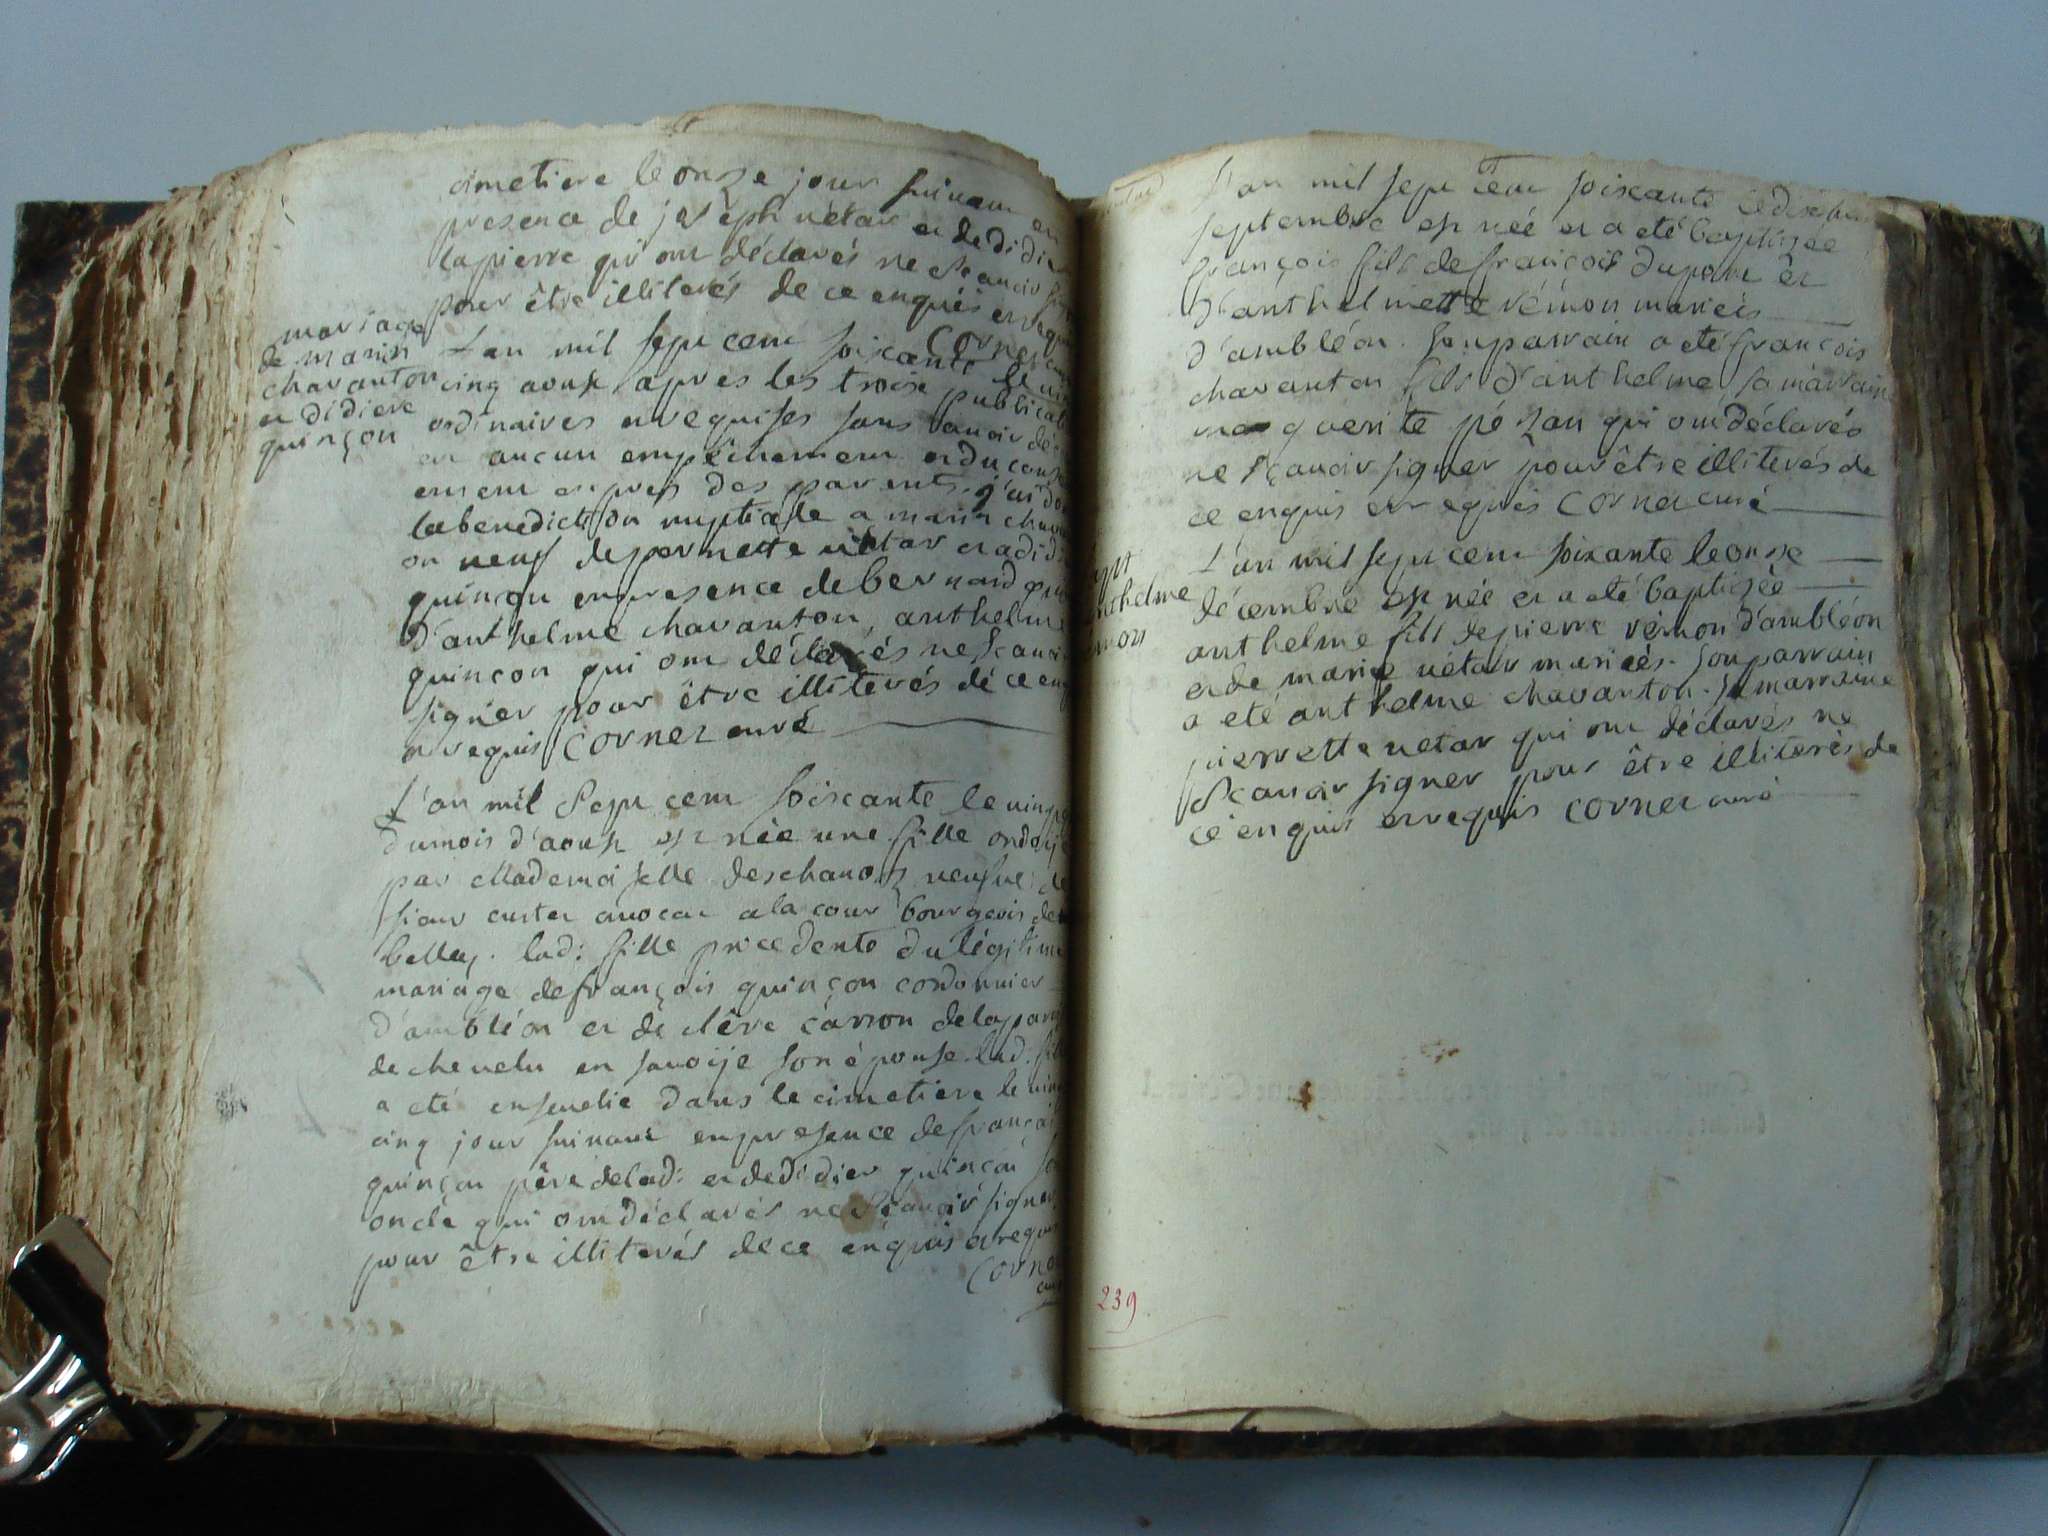 cimetiere le onze jour suivant en
presence de joseph vetar et de didier
lapierre qui ont déclarés ne sçavoir
pour être illiterés de ce enquis et requis
Cornez curé
mariage
de marin
chavanton
et didiere
quinçon
L'an mil sept cent soixante le vin
cinq aoust apres les trois publicat
ordinaires et requises sans avoir dé
en aucun empêchement et du cons
ement expres des parents j'ai do
la benediction nuptiale a marin chava
on veuf de pernette vetar et a didi
quinçon en presence de bernard
d'anthelme chavanton, anthelme
quinçon qui ont déclarés ne sçavoi
signer pour être illiterés de ce enq
et requis Cornez curé
L'an mil sept cent soixante le vingt
du mois d'aoust est née une fille ondoije
par Mademoiselle deschanoz de
sieur custer avocat a la cour bourgeois de
belley. lad: fille procedente du légitime
mariage de françois quinçon cordonnier
d'ambléon et de carron de la par
de chevelu en savoije son épouse. lad: fil
a eté ensevelie dans le cimetiere le vin
cinq jour suivant en presence de françoi
quinçon père de lad: et de didier quinçon so
oncle qui ont déclarés ne sçavoir signer
pour être illiterés de ce enquis et requi
Corne
cu
L'an mil sept cent soixante le
septembre est née et a eté baptisée
françois fils de françois dupont et
d'anthelmette rémon mariés
d'ambléon. son parrain a eté françois
chavanton fils d'anthelme sa marraine
marguerite pézan qui ont déclarés
ne sçavoir signer pour être illiterés de
ce enquis et requis Cornez curé
bapt
anthelme
rémon
L'an mil sept cent soixante le onze
décembre est née et a eté baptisée
anthelme fils de pierre rémon d'ambléon
et de marie vetar mariés. son parrain
a eté anthelme chavanton. sa marraine
pierrette vetar qui ont déclarés ne
sçavoir signer pour être illiterés de
ce enquis et requis Cornez curé
239